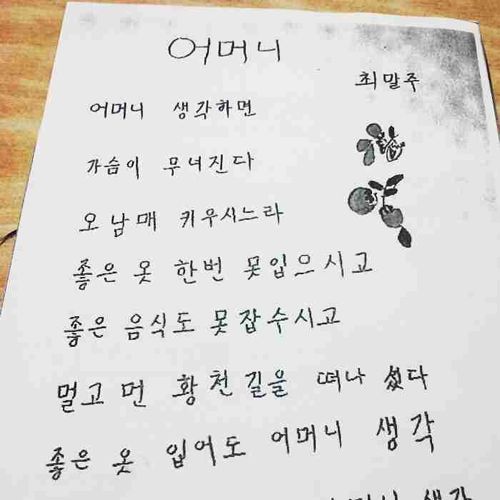 어머니
최말주
어머니 생각하면
가슴이 무너진다
오남매 키우시느라
좋은 옷 한번 못입으시고
좋은 음식도 못잡수시고
멀고 먼 황천길을 떠나 셨다
좋은 옷 입어도 어머니 생각
생각